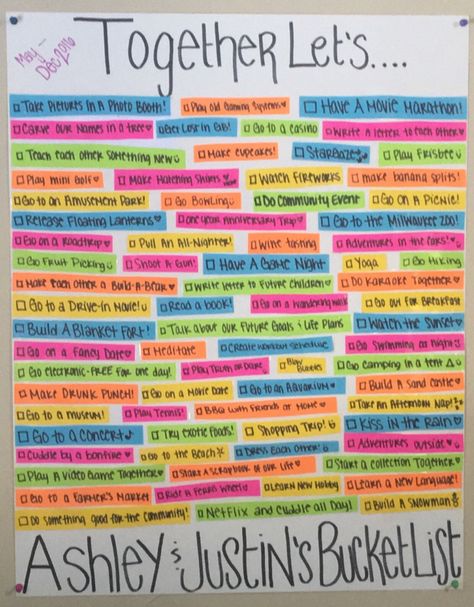 Together Let's....
May - Dec 2016
Take Pictures In A Photo Booth! Play Old Gaming Systems Have A Movie Marathon!
Carve our names in a tree Get Lost in Go to a casino Write a letter to each other
Teach each other something new Make cupcakes! Stargaze Play Frisbee
Play mini Golf Make Matching Shirts Watch Fireworks make banana splits!
Go to an Amusement Park! Go Bowling Do Community Event Go On A Picnic!
Release Floating Lanterns one year Anniversary Trip Go to the Milwaukee Zoo!
Go on a Roadtrip Pull An All-Nighter! Wine tasting Adventures in the Cars!
Go Fruit Picking Shoot A Gun! Have A Game Night Yoga Go Hiking
Make Each other a Build-A-Bear Write letter to Future Children Do Karaoke Together
Go to a Drive-In Movie! Read a book! Go on a wandering walk Go out for Breakfast
Build A Blanket Fort! Talk about our Future Goals & Life Plans Watch the Sunset
Go on a Fancy Date Meditate Create workout schedule Go Swimming at night
Go electronic-FREE for one day! Play Truth or Dare Blow Bubbles Go Camping in a tent
Make DRUNK PUNCH! Go on a Movie Date Go to an Aquarium Build A Sand castle
Go to a museum! Play Tennis! BBQ with Friends at Home Take An Afternoon Nap!
Go to a Concert Try Exotic Foods! Shopping Trip! Kiss in the Rain
Cuddle by a bonfire Go to the Beach Dress Each Other! Adventures outside
Play A Video Game Together Start A Scrapbook of our Life Start a Collection Together
Go to a Farmer's Market Ride A Ferris Wheel Learn New Hobby Learn a New Language!
Do something good for the community! Netflix and cuddle all Day! Build A Snowman
Ashley & Justin's Bucket List